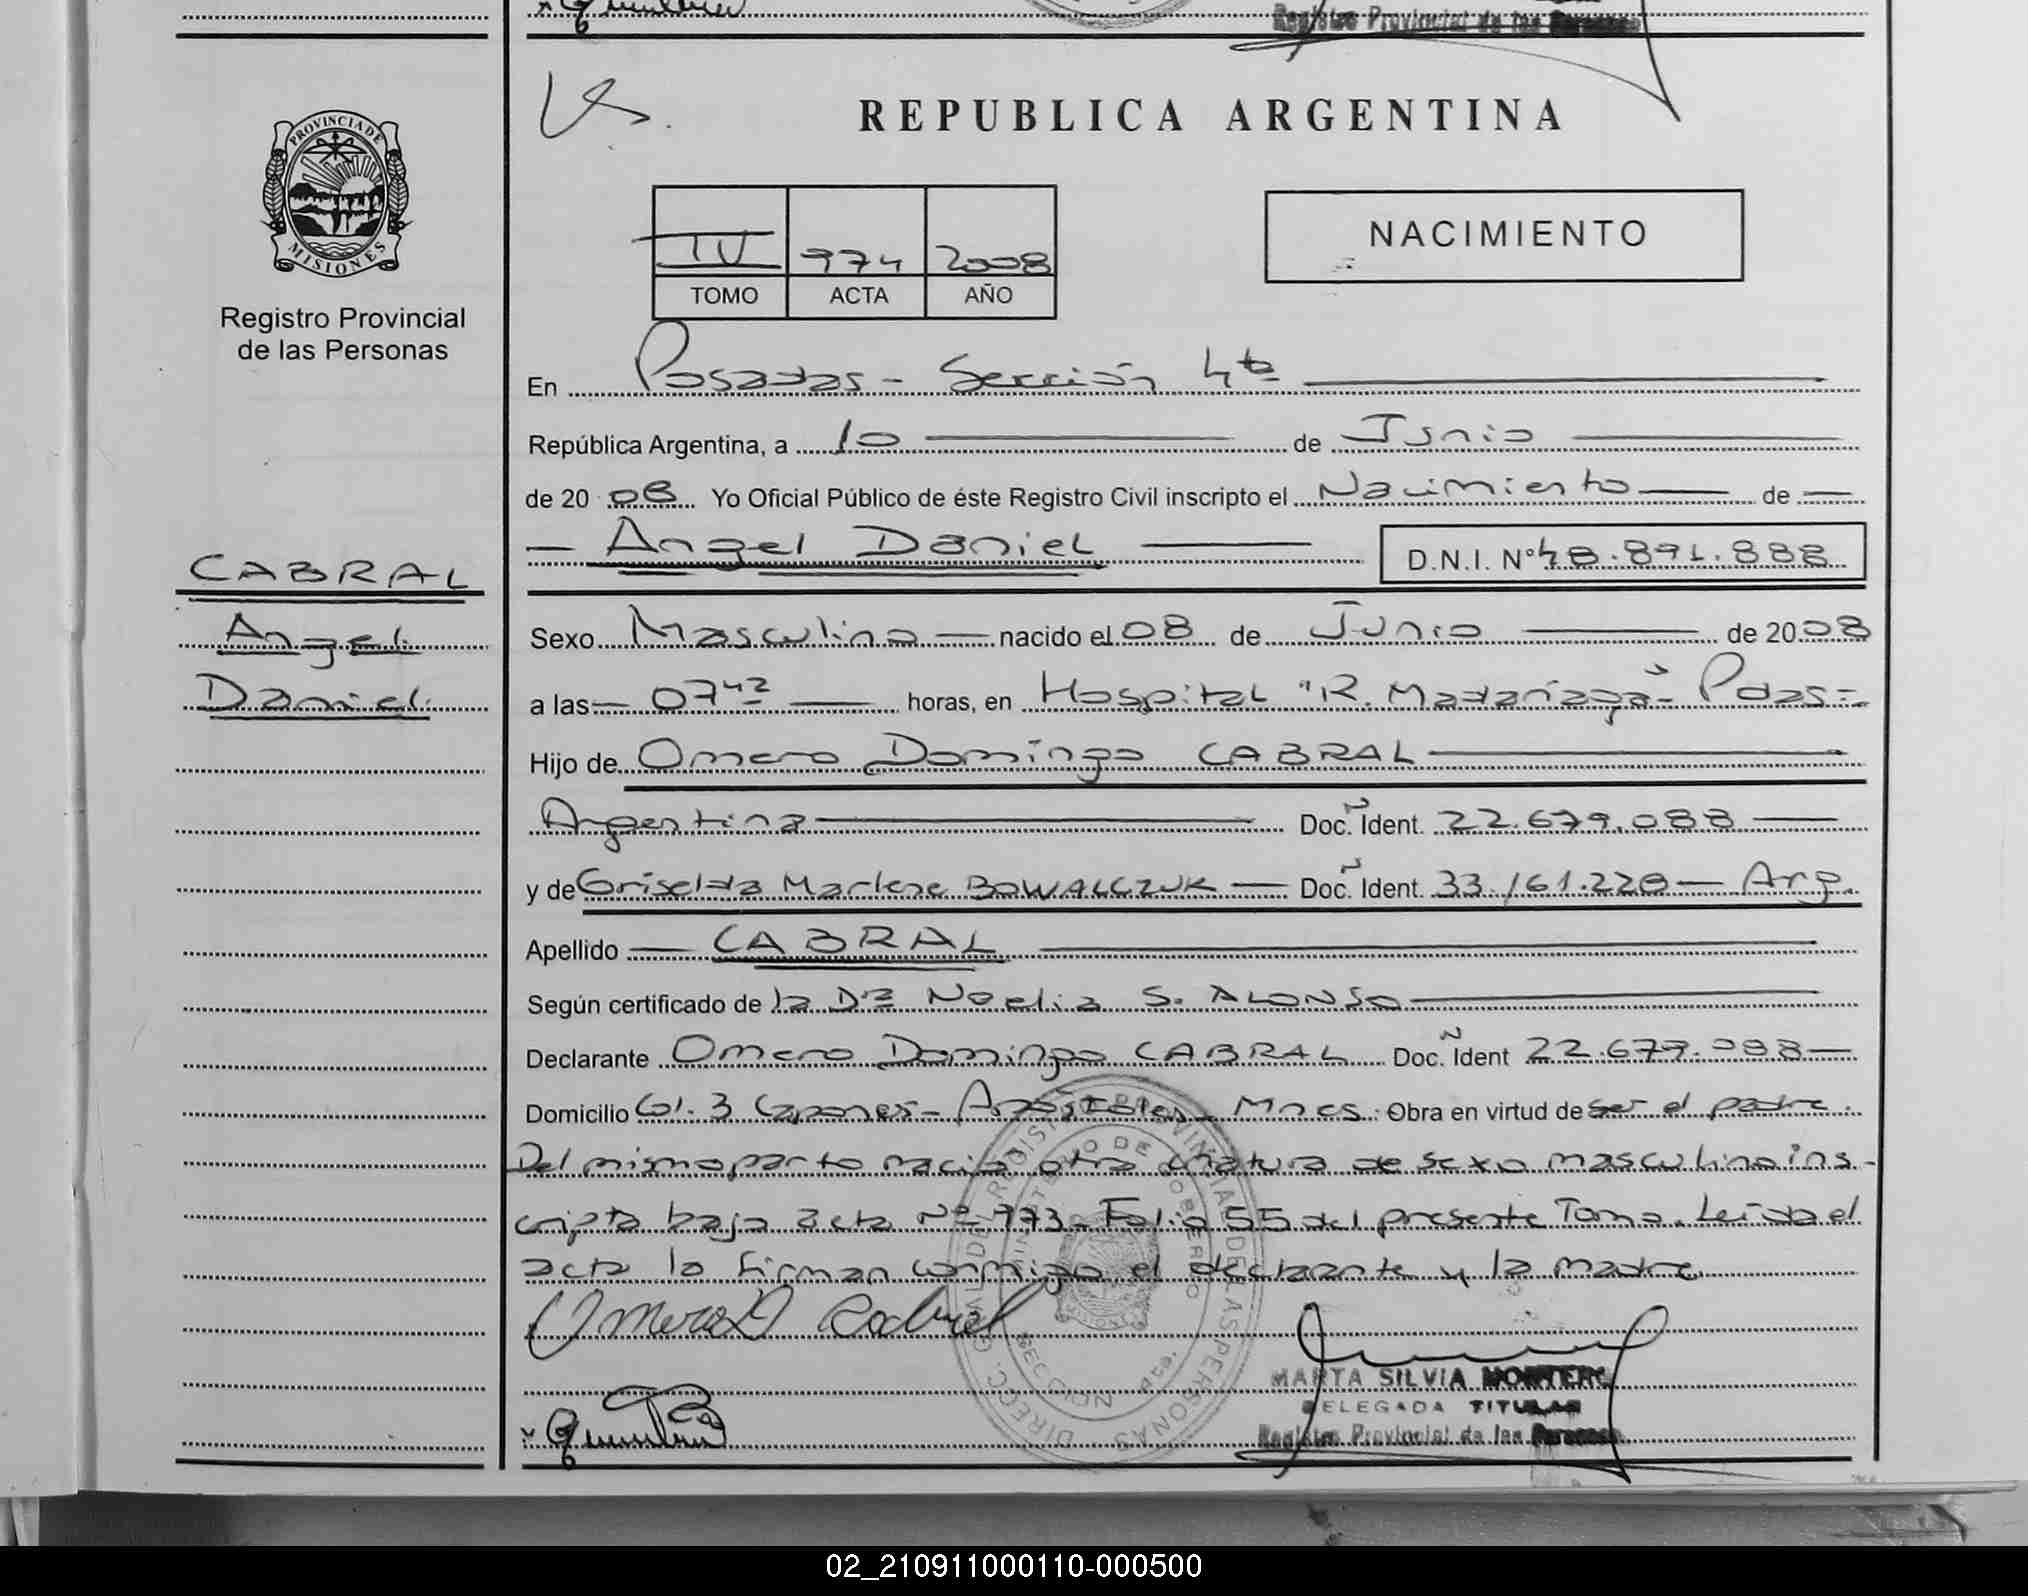 Registro Provincial de las Personas
PROVINCIA DE
MISIONES
Registro Provincial
de las Personas
CABRAL
Angel
Daniel
REPUBLICA ARGENTINA
IV 974 2008
TOMO ACTA AÑO
NACIMIENTO
En Posadas - Sección 4ta
República Argentina, a 10 de Junio
de 20 08 Yo Oficial Público de éste Registro Civil inscripto el Nacimiento de
Angel Daniel D.N.I. Nº 48.891.888
Sexo Masculino nacido el 08 de Junio de 2008
a las 07 42 horas, en Hospital "R. Madariaga" - Pdas -
Hijo de Omero Domingo CABRAL
Argentina Doc. Ñ Ident. 22.679.088
y de Griselda Marlene BOWALCZUK Doc. Ñ Ident. 33.161.228 Arg.
Apellido CABRAL
Según certificado de la Dra Noelia S. ALONSO
Declarante Omero Domingo CABRAL Doc. Ñ Ident 22.679.088
Domicilio Col. 3 Capones - Apóstoles - Mnes. Obra en virtud de ser el padre.
Del mismo parto nació otra criatura de sexo masculino ins-
cripta bajo acta Nº 973 - Folio 55 del presente Tomo. Leída el
acta la firman conmigo el declarante y la madre
Omero D Cabral
MARTA SILVIA
DELEGADA TITULAR
Registro Provincial de las Personas
02_210911000110-000500